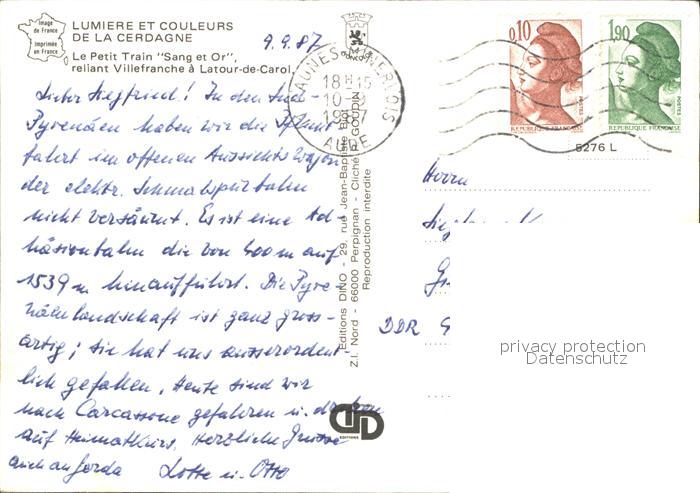 Image
de France
Imprimée
en France
LUMIERE ET COULEURS
DE LA CERDAGNE
Le Petit Train "Sang et Or",
reliant Villefranche à Latour-de-Carol,
9.9.87
Lieber Siegfried! In den Süd-
Pyrenäen haben wir die
fahrt im offenen Aussichtswagon
der elektr. Schmalspurbahn
nicht versäumt. Es ist eine Ad-
häsionsbahn die von 400 m auf
1539 m hinaufführt. Die Pyre-
näenlandschaft ist ganz gross-
artig; sie hat uns ausserordent-
lich gefallen. Heute sind wir
nach Carcassone gefahren u.
auf Heimatkurs. Herzliche Grüsse
auch an Gerda Lotte u. Otto
Editions DINO - 29, rue Jean-Baptiste Biot
Z.I. Nord - 66000 Perpignan - Cliché J. GOUDIN
Reproduction interdite
EDITIONS
MINERVOIS
18H15
10-9
1987
AUDE
0,10
POSTES
REPUBLIQUE FRANÇAISE
1,90
POSTES
REPUBLIQUE FRANÇAISE
5276 L
Herrn
DDR
privacy protection
Datenschutz